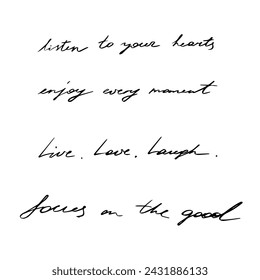 listen to your hearts
enjoy every moment
Live. Love. Laugh.
focus on the good
shutterstock.com · 2431886133